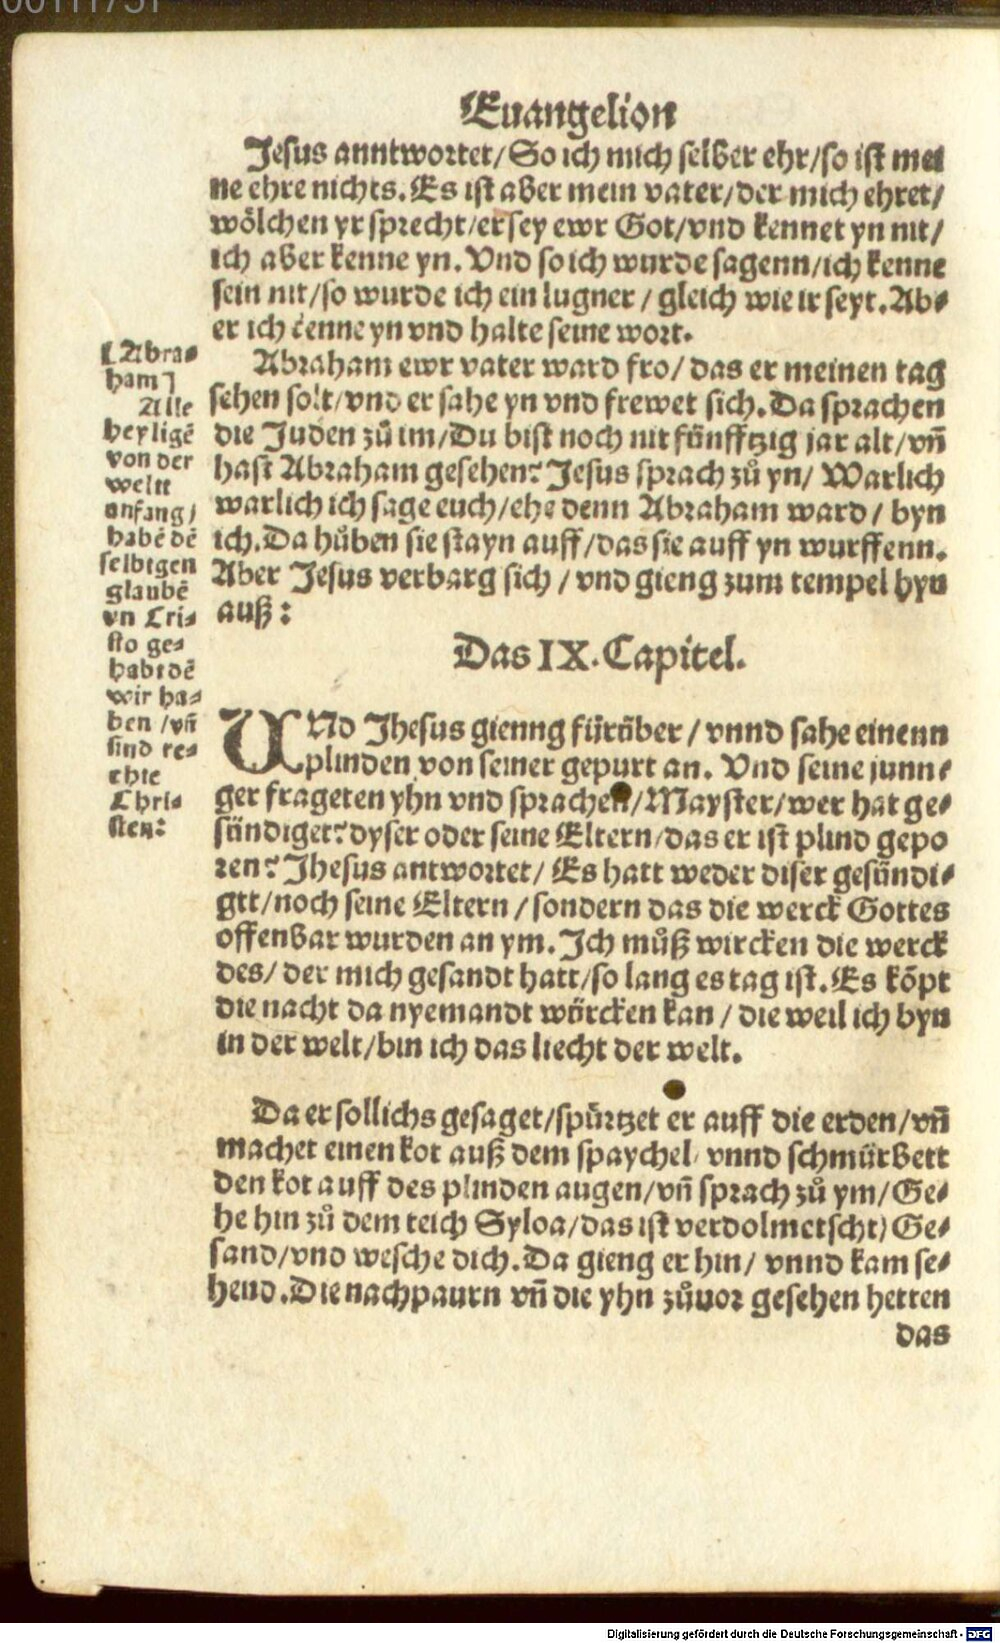 00111731
Euangelion
Jesus anntwortet/So ich mich selber ehr/so ist mei
ne ehre nichts. Es ist aber mein vater/der mich ehret/
wölchen yr sprecht/er sey ewr Got/vnd kennet yn nit/
ich aber kenne yn. Vnd so ich wurde sagenn/ich kenne
sein nit/so wurde ich ein lugner/gleich wie ir seyt. Ab⸗
er ich kenne yn vnd halte seine wort.
Abraham ewr vater ward fro/das er meinen tag
sehen solt/vnd er sahe yn vnd frewet sich. Da sprachen
die Juden zů im/Du bist noch nit fünfftzig jar alt/vñ
hast Abraham gesehen? Jesus sprach zů yn/Warlich
warlich ich sage euch/ehe denn Abraham ward/byn
ich. Da hůben sie stayn auff/das sie auff yn wurffenn.
Aber Jesus verbarg sich/vnd gieng zum tempel hyn
auß:
[Abra⸗
ham]
Alle
heyligẽ
von der
weltt
anfang/
habẽ dẽ
selbigen
glaubẽ
yn Cri⸗
sto ge⸗
habt dẽ
wir ha⸗
ben/vñ
sind re⸗
chte
Chri⸗
sten:
Das IX. Capitel.
VNd Jhesus gienng fürüber/vnnd sahe einenn
plinden von seiner gepurt an. Vnd seine junn⸗
ger frageten yhn vnd sprachen/Mayster/wer hat ge⸗
sündiget? dyser oder seine Eltern/das er ist plind gepo
ren? Jhesus antwortet/Es hatt weder diser gesündi⸗
gtt/noch seine Eltern/sondern das die werck Gottes
offenbar wurden an ym. Ich můß wircken die werck
des/der mich gesandt hatt/so lang es tag ist. Es kõpt
die nacht da nyemandt wörcken kan/die weil ich byn
in der welt/bin ich das liecht der welt.
Da er sollichs gesaget/spürtzet er auff die erden/vñ
machet einen kot auß dem spaychel/vnnd schmürbett
den kot auff des plinden augen/vñ sprach zů ym/Ge⸗
he hin zů dem teich Syloa/das ist verdolmetscht) Ge⸗
sand/vnd wesche dich. Da gieng er hin/vnnd kam se⸗
hend. Die nachpaurn vñ die yhn zůuor gesehen hetten
das
Digitalisierung gefördert durch die Deutsche Forschungsgemeinschaft - DFG